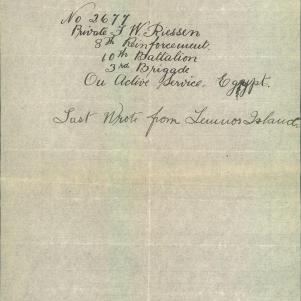 No 2677
Private F W Russen
8th Reinforcement
10th Battalion
3rd Brigade
On Active Service. Egypt.
Last Wrote from Lemnos Island